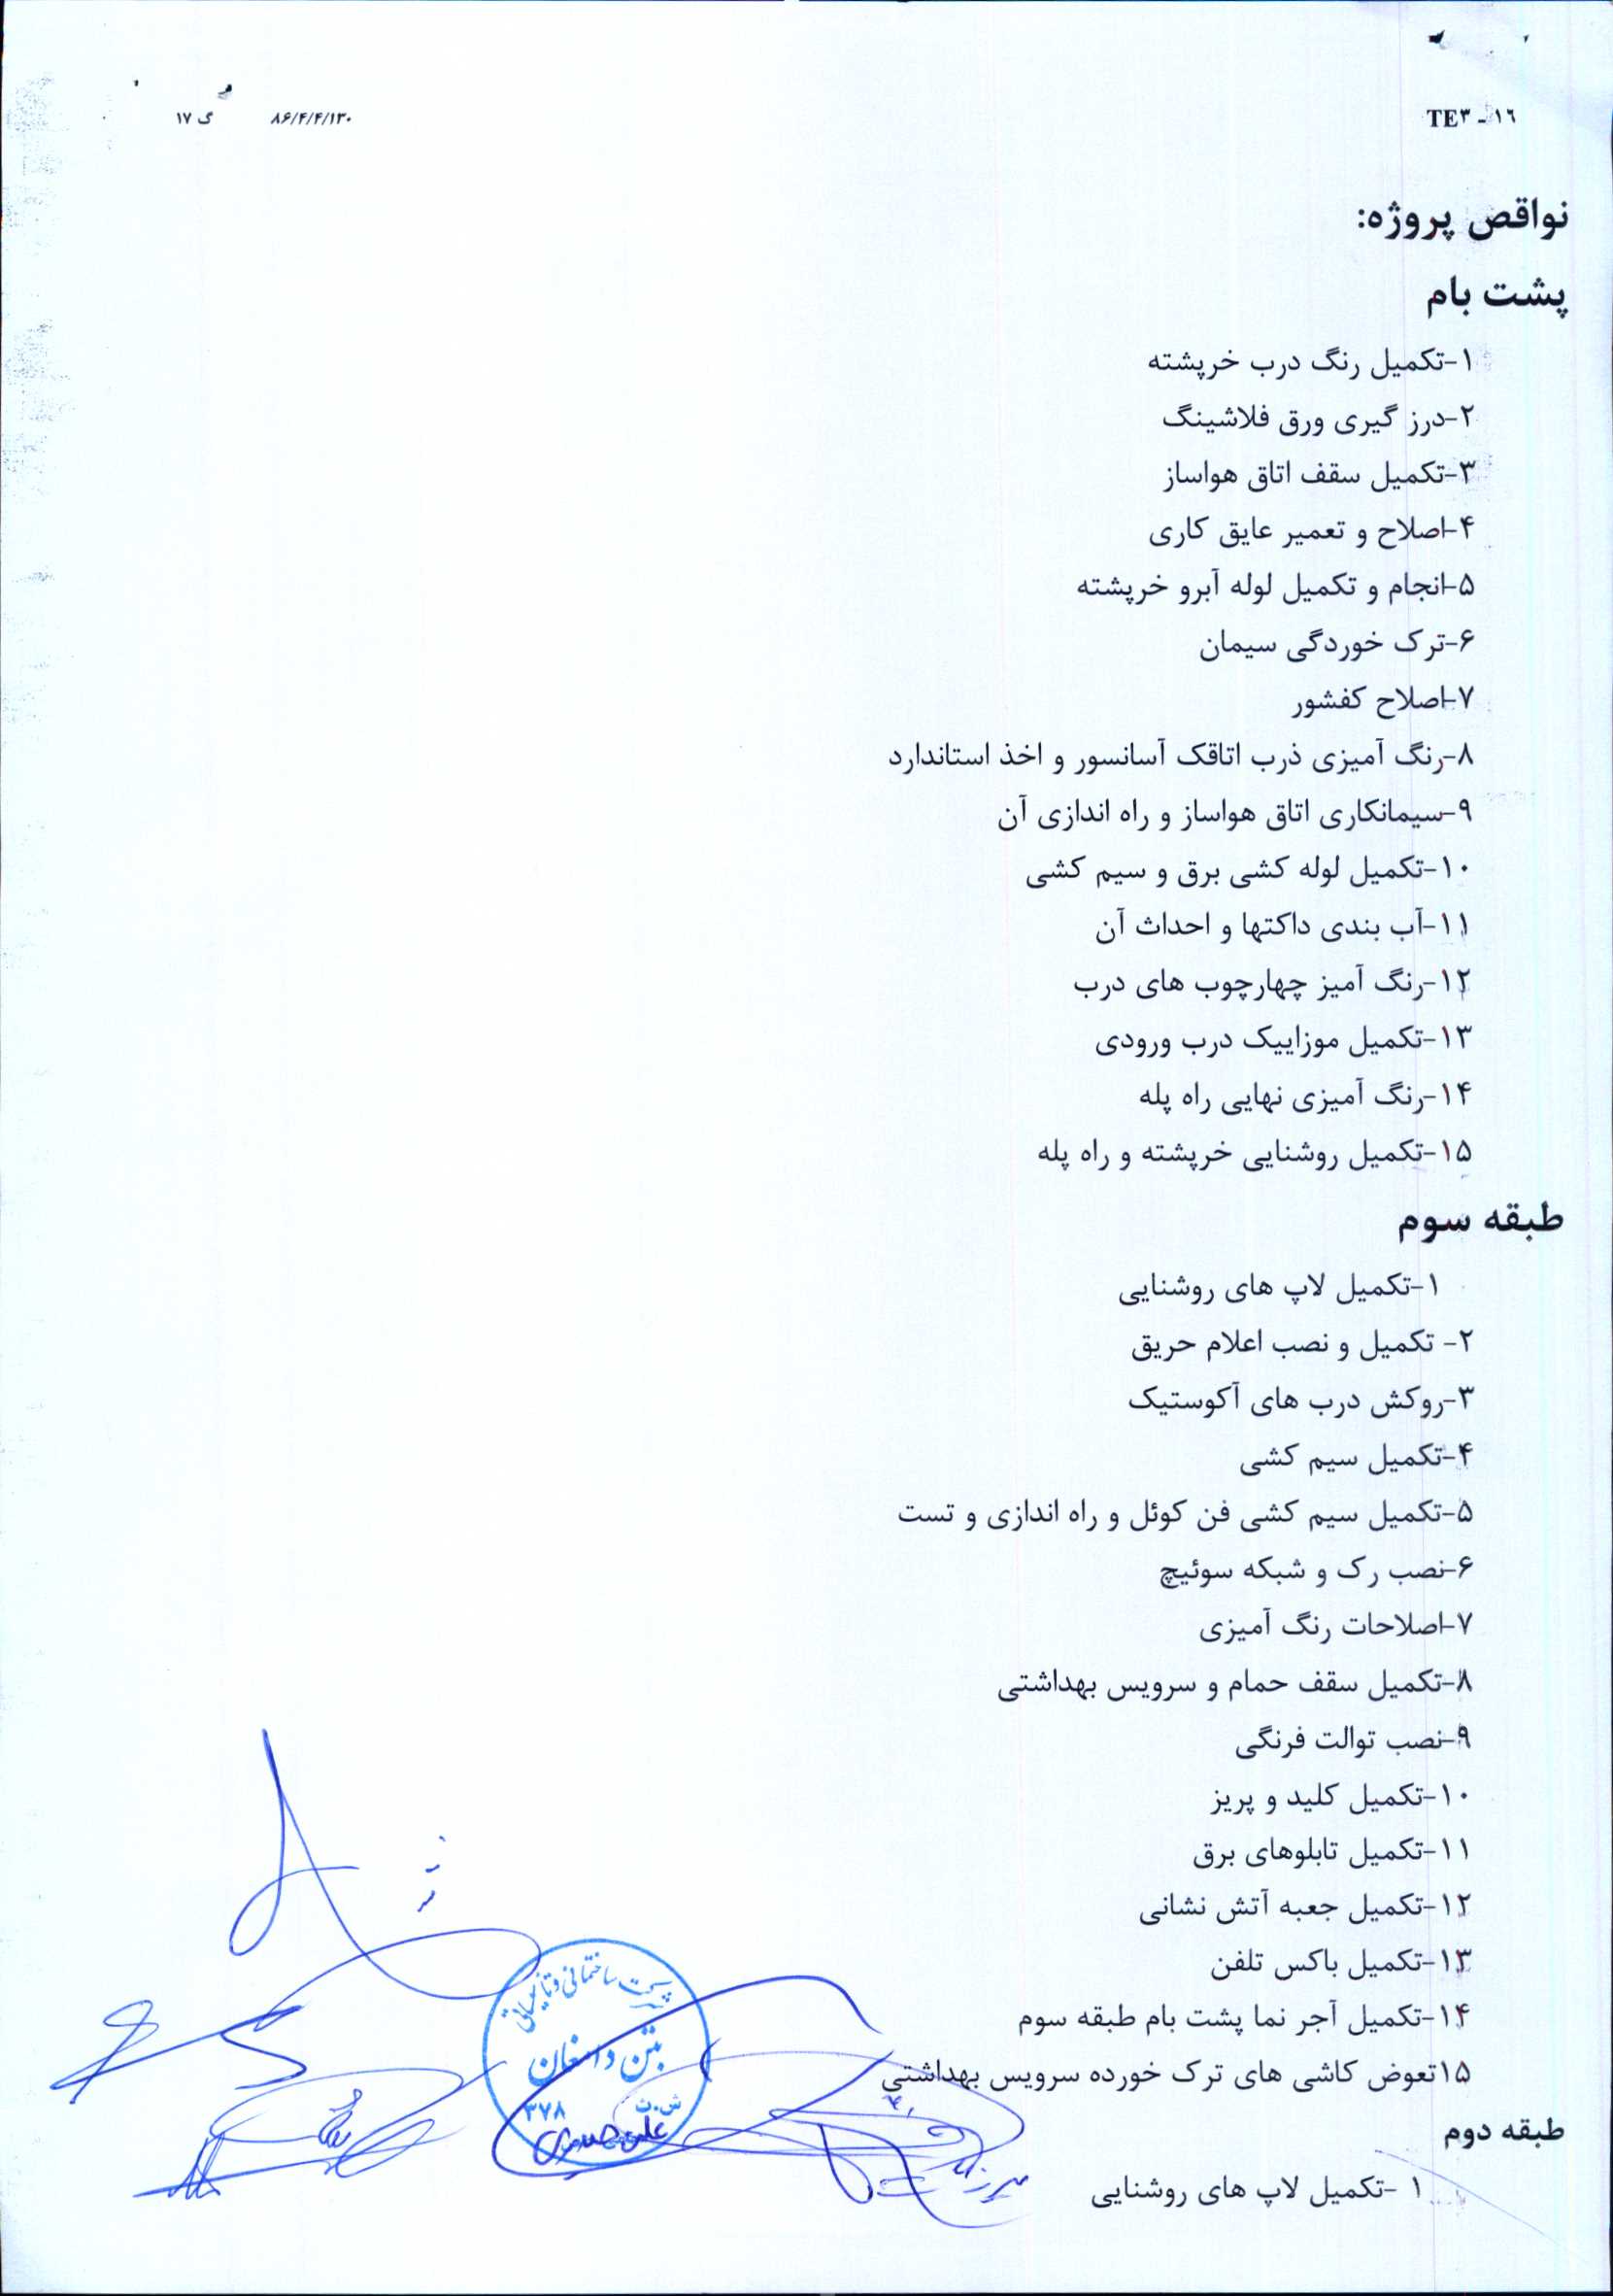 TE۳ - ۱۶
۸۶/۴/۴/۱۳۰ گ ۱۷
نواقص پروژه:
پشت بام
۱-تکمیل رنگ درب خرپشته
۲-درز گیری ورق فلاشینگ
۳-تکمیل سقف اتاق هواساز
۴-اصلاح و تعمیر عایق کاری
۵-انجام و تکمیل لوله آبرو خرپشته
۶-ترک خوردگی سیمان
۷-اصلاح کفشور
۸-رنگ آمیزی ذرب اتاقک آسانسور و اخذ استاندارد
۹-سیمانکاری اتاق هواساز و راه اندازی آن
۱۰-تکمیل لوله کشی برق و سیم کشی
۱۱-آب بندی داکتها و احداث آن
۱۲-رنگ آمیز چهارچوب های درب
۱۳-تکمیل موزاییک درب ورودی
۱۴-رنگ آمیزی نهایی راه پله
۱۵-تکمیل روشنایی خرپشته و راه پله
طبقه سوم
۱-تکمیل لاپ های روشنایی
۲- تکمیل و نصب اعلام حریق
۳-روکش درب های آکوستیک
۴-تکمیل سیم کشی
۵-تکمیل سیم کشی فن کوئل و راه اندازی و تست
۶-نصب رک و شبکه سوئیچ
۷-اصلاحات رنگ آمیزی
۸-تکمیل سقف حمام و سرویس بهداشتی
۹-نصب توالت فرنگی
۱۰-تکمیل کلید و پریز
۱۱-تکمیل تابلوهای برق
۱۲-تکمیل جعبه آتش نشانی
۱۳-تکمیل باکس تلفن
۱۴-تکمیل آجر نما پشت بام طبقه سوم
۱۵تعوض کاشی های ترک خورده سرویس بهداشتی
شرکت ساختمانی و تاسیساتی
بتن دامغان
ش.ث ۳۷۸
طبقه دوم
۱ -تکمیل لاپ های روشنایی